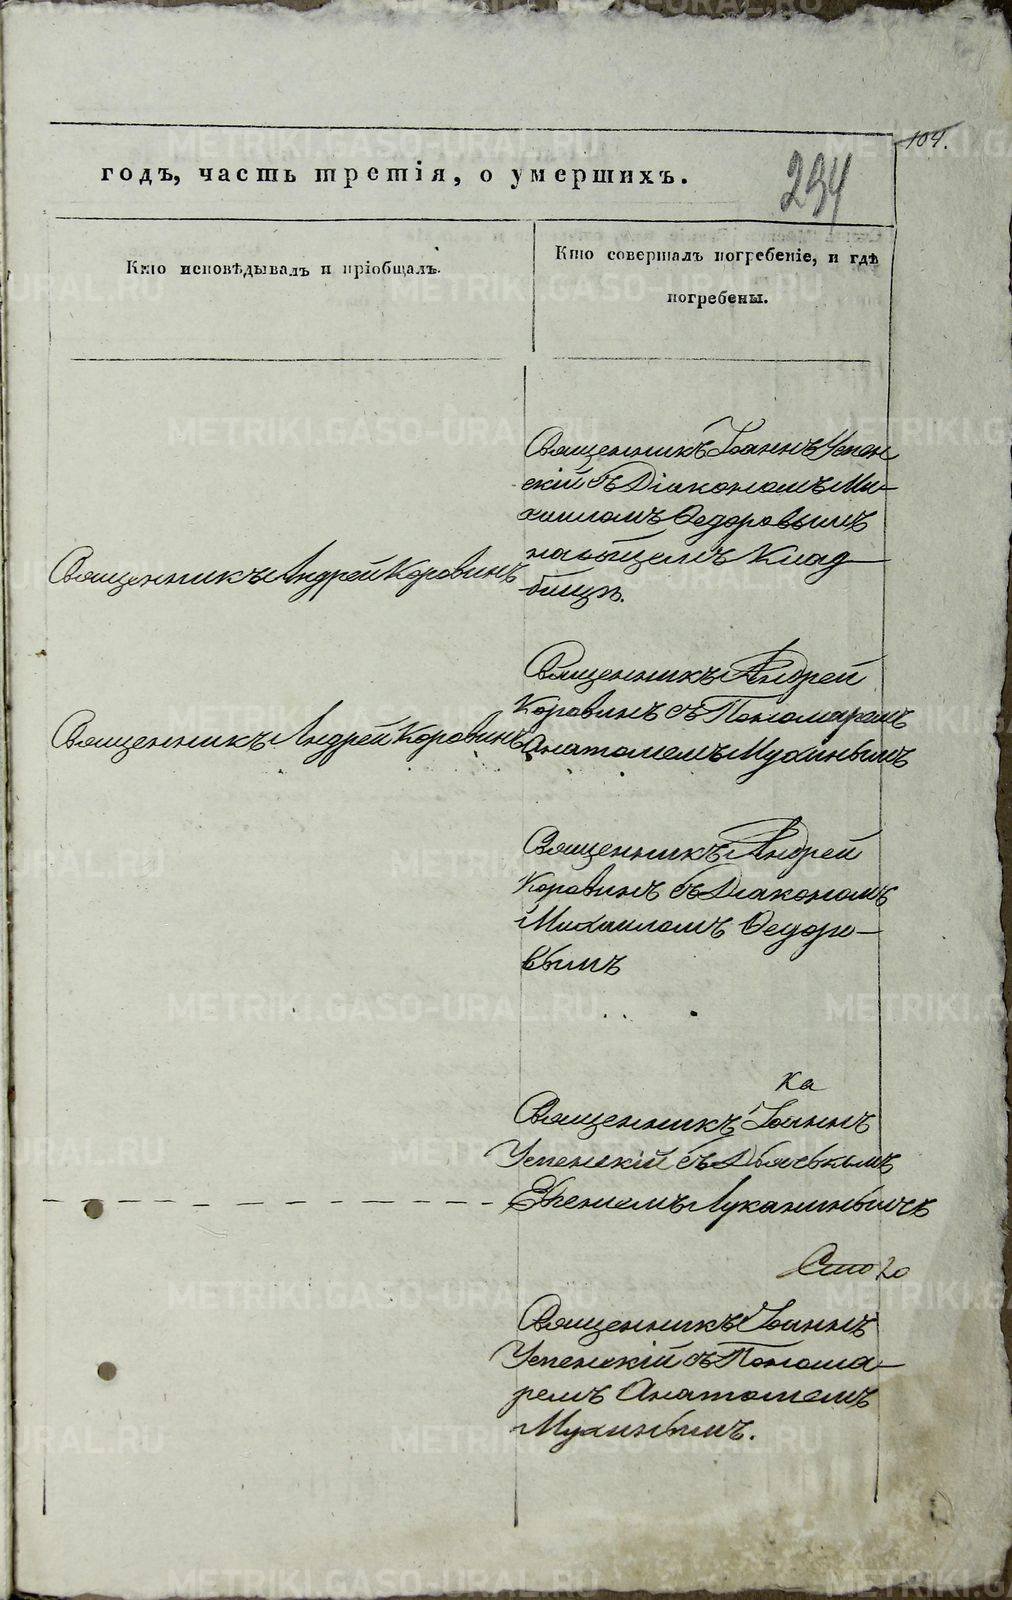 104.
годъ, часть третія, о умершихъ.
234
Кто исповѣдывалъ и пріобщалъ.
Кто совершалъ погребеніе, и гдѣ
погребены.
Священникъ Іоаннъ Успен
скій съ Діакономъ Ми-
хаиломъ Федоровымъ
на общемъ Клад-
бищѣ.
Священникъ Андрей Коровинъ
Священникъ Андрей
Коровинъ съ Пономаремъ
Анатолиемъ Мухинымъ
Священникъ Андрей Коровинъ
Священникъ Андрей
Коровинъ съ Діакономъ
Михаиломъ Федоро-
вымъ
ка
Священникъ Іоаннъ
Успенскій съ Дьячкомъ
Евгениемъ Луканинымъ
20
Священникъ Іоаннъ
Успенскій съ Понома-
ремъ Анатолиемъ
Мухинымъ.
METRIKI.GASO-URAL.RU